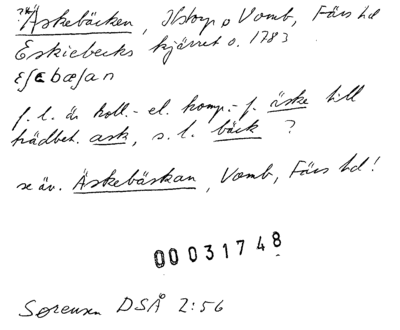 Äskebäcken, Ilstorp o Vomb, Färs hd
Eskiebecks kjärret o. 1783
ɛʃɛbæʃan
f. l. är koll.- el. komp.- f. äske till
trädbet. ask, s. l. bäck ?
se äv. Äskebäskan, Vomb, Färs hd!
00031748
Sørensen DSÅ 2:56